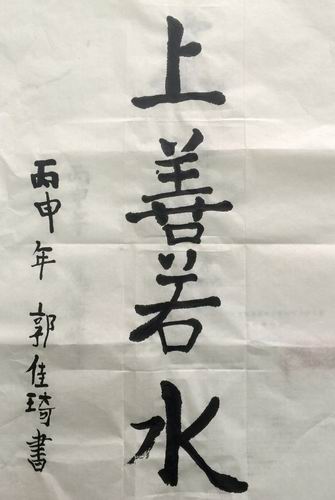 上善若水
丙申年 郭佳琦書